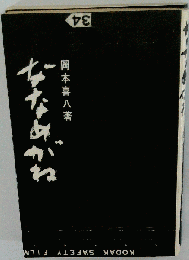 34
岡本喜八著
ななめがね
KODAK SAFETY FILM